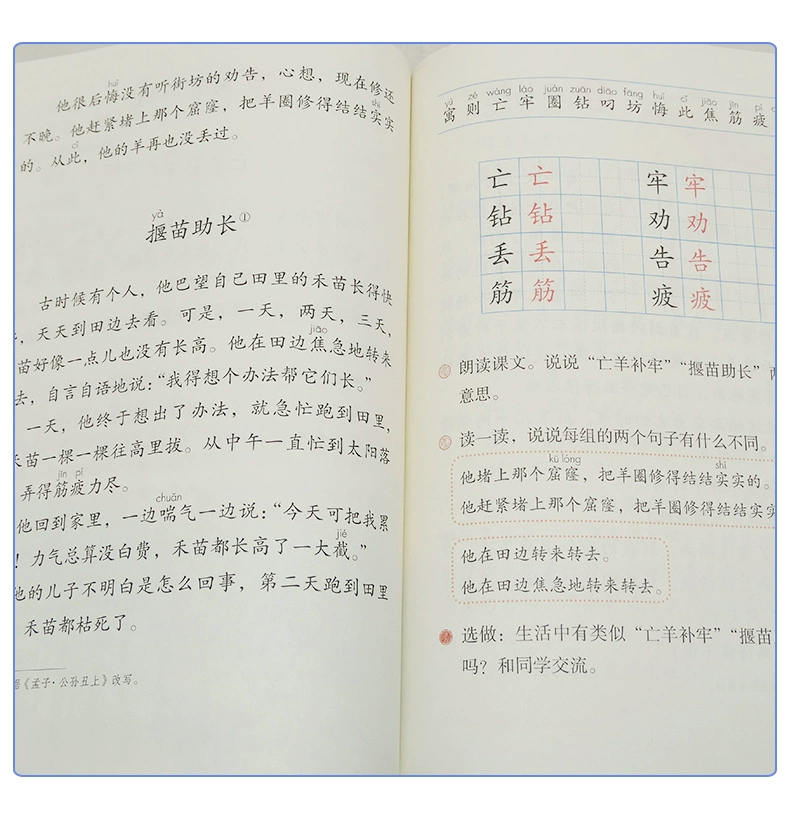 huǐ
他很后悔没有听街坊的劝告，心想，现在修还
shi
不晚。他赶紧堵上那个窟窿，把羊圈修得结结实实
cǐ
的。从此，他的羊再也没丢过。
yà
揠苗助长①
古时候有个人，他巴望自己田里的禾苗长得快
，天天到田边去看。可是，一天，两天，三天，
jiāo
苗好像一点儿也没有长高。他在田边焦急地转来
去，自言自语地说：“我得想个办法帮它们长。”
一天，他终于想出了办法，就急忙跑到田里，
禾苗一棵一棵往高里拔。从中午一直忙到太阳落
jīn pí
弄得筋疲力尽。
chuǎn
他回到家里，一边喘气一边说：“今天可把我累
jié
！力气总算没白费，禾苗都长高了一大截。”
他的儿子不明白是怎么回事，第二天跑到田里
禾苗都枯死了。
《孟子·公孙丑上》改写。
yù zé wáng láo juàn zuān diāo fāng huǐ cǐ jiāo jīn pí
寓 则 亡 牢 圈 钻 叼 坊 悔 此 焦 筋 疲
亡 亡 牢 牢
钻 钻 劝 劝
丢 丢 告 告
筋 筋 疲 疲
朗读课文。说说“亡羊补牢”“揠苗助长”
意思。
读一读，说说每组的两个句子有什么不同。
kū lóng shi
他堵上那个窟窿，把羊圈修得结结实实的。
他赶紧堵上那个窟窿，把羊圈修得结结实
他在田边转来转去。
他在田边焦急地转来转去。
选做：生活中有类似“亡羊补牢”“揠苗
吗？和同学交流。